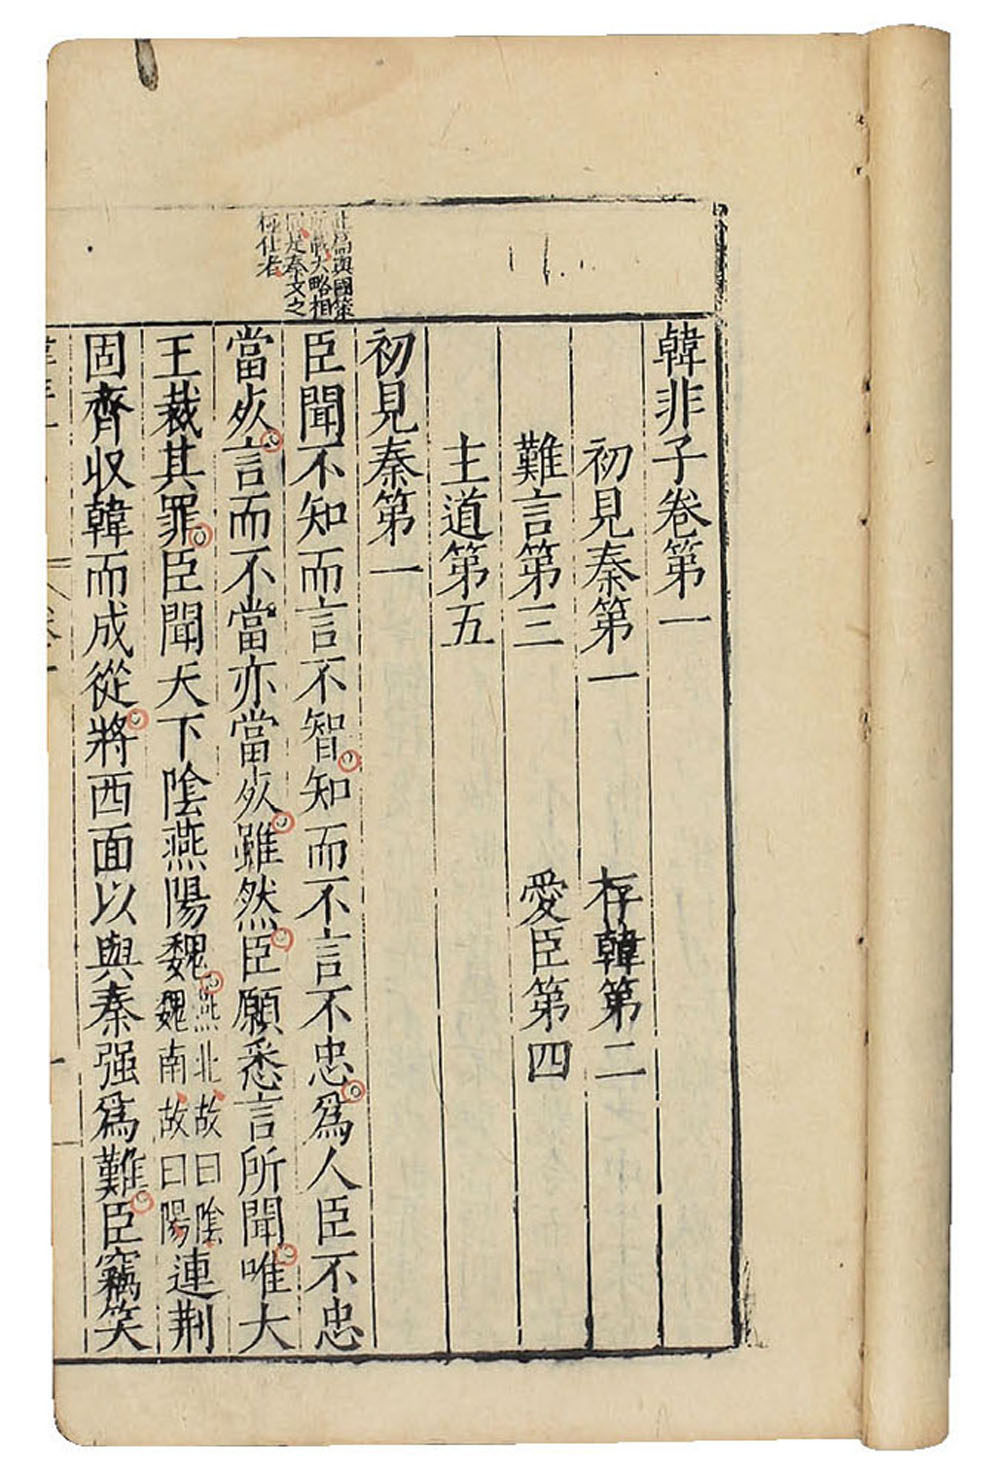 韓非子卷第一
初見秦第一 存韓第二
難言第三 愛臣第四
主道第五
初見秦第一
與國策
大略相
同是秦文之
者
臣聞不知而言不智知而不言不忠爲人臣不忠
當死言而不當亦當死雖然臣願悉言所聞唯大
王裁其罪臣聞天下陰燕陽魏燕北故曰陰魏南故曰陽連荆
固齊収韓而成從將西面以與秦强爲難臣竊笑